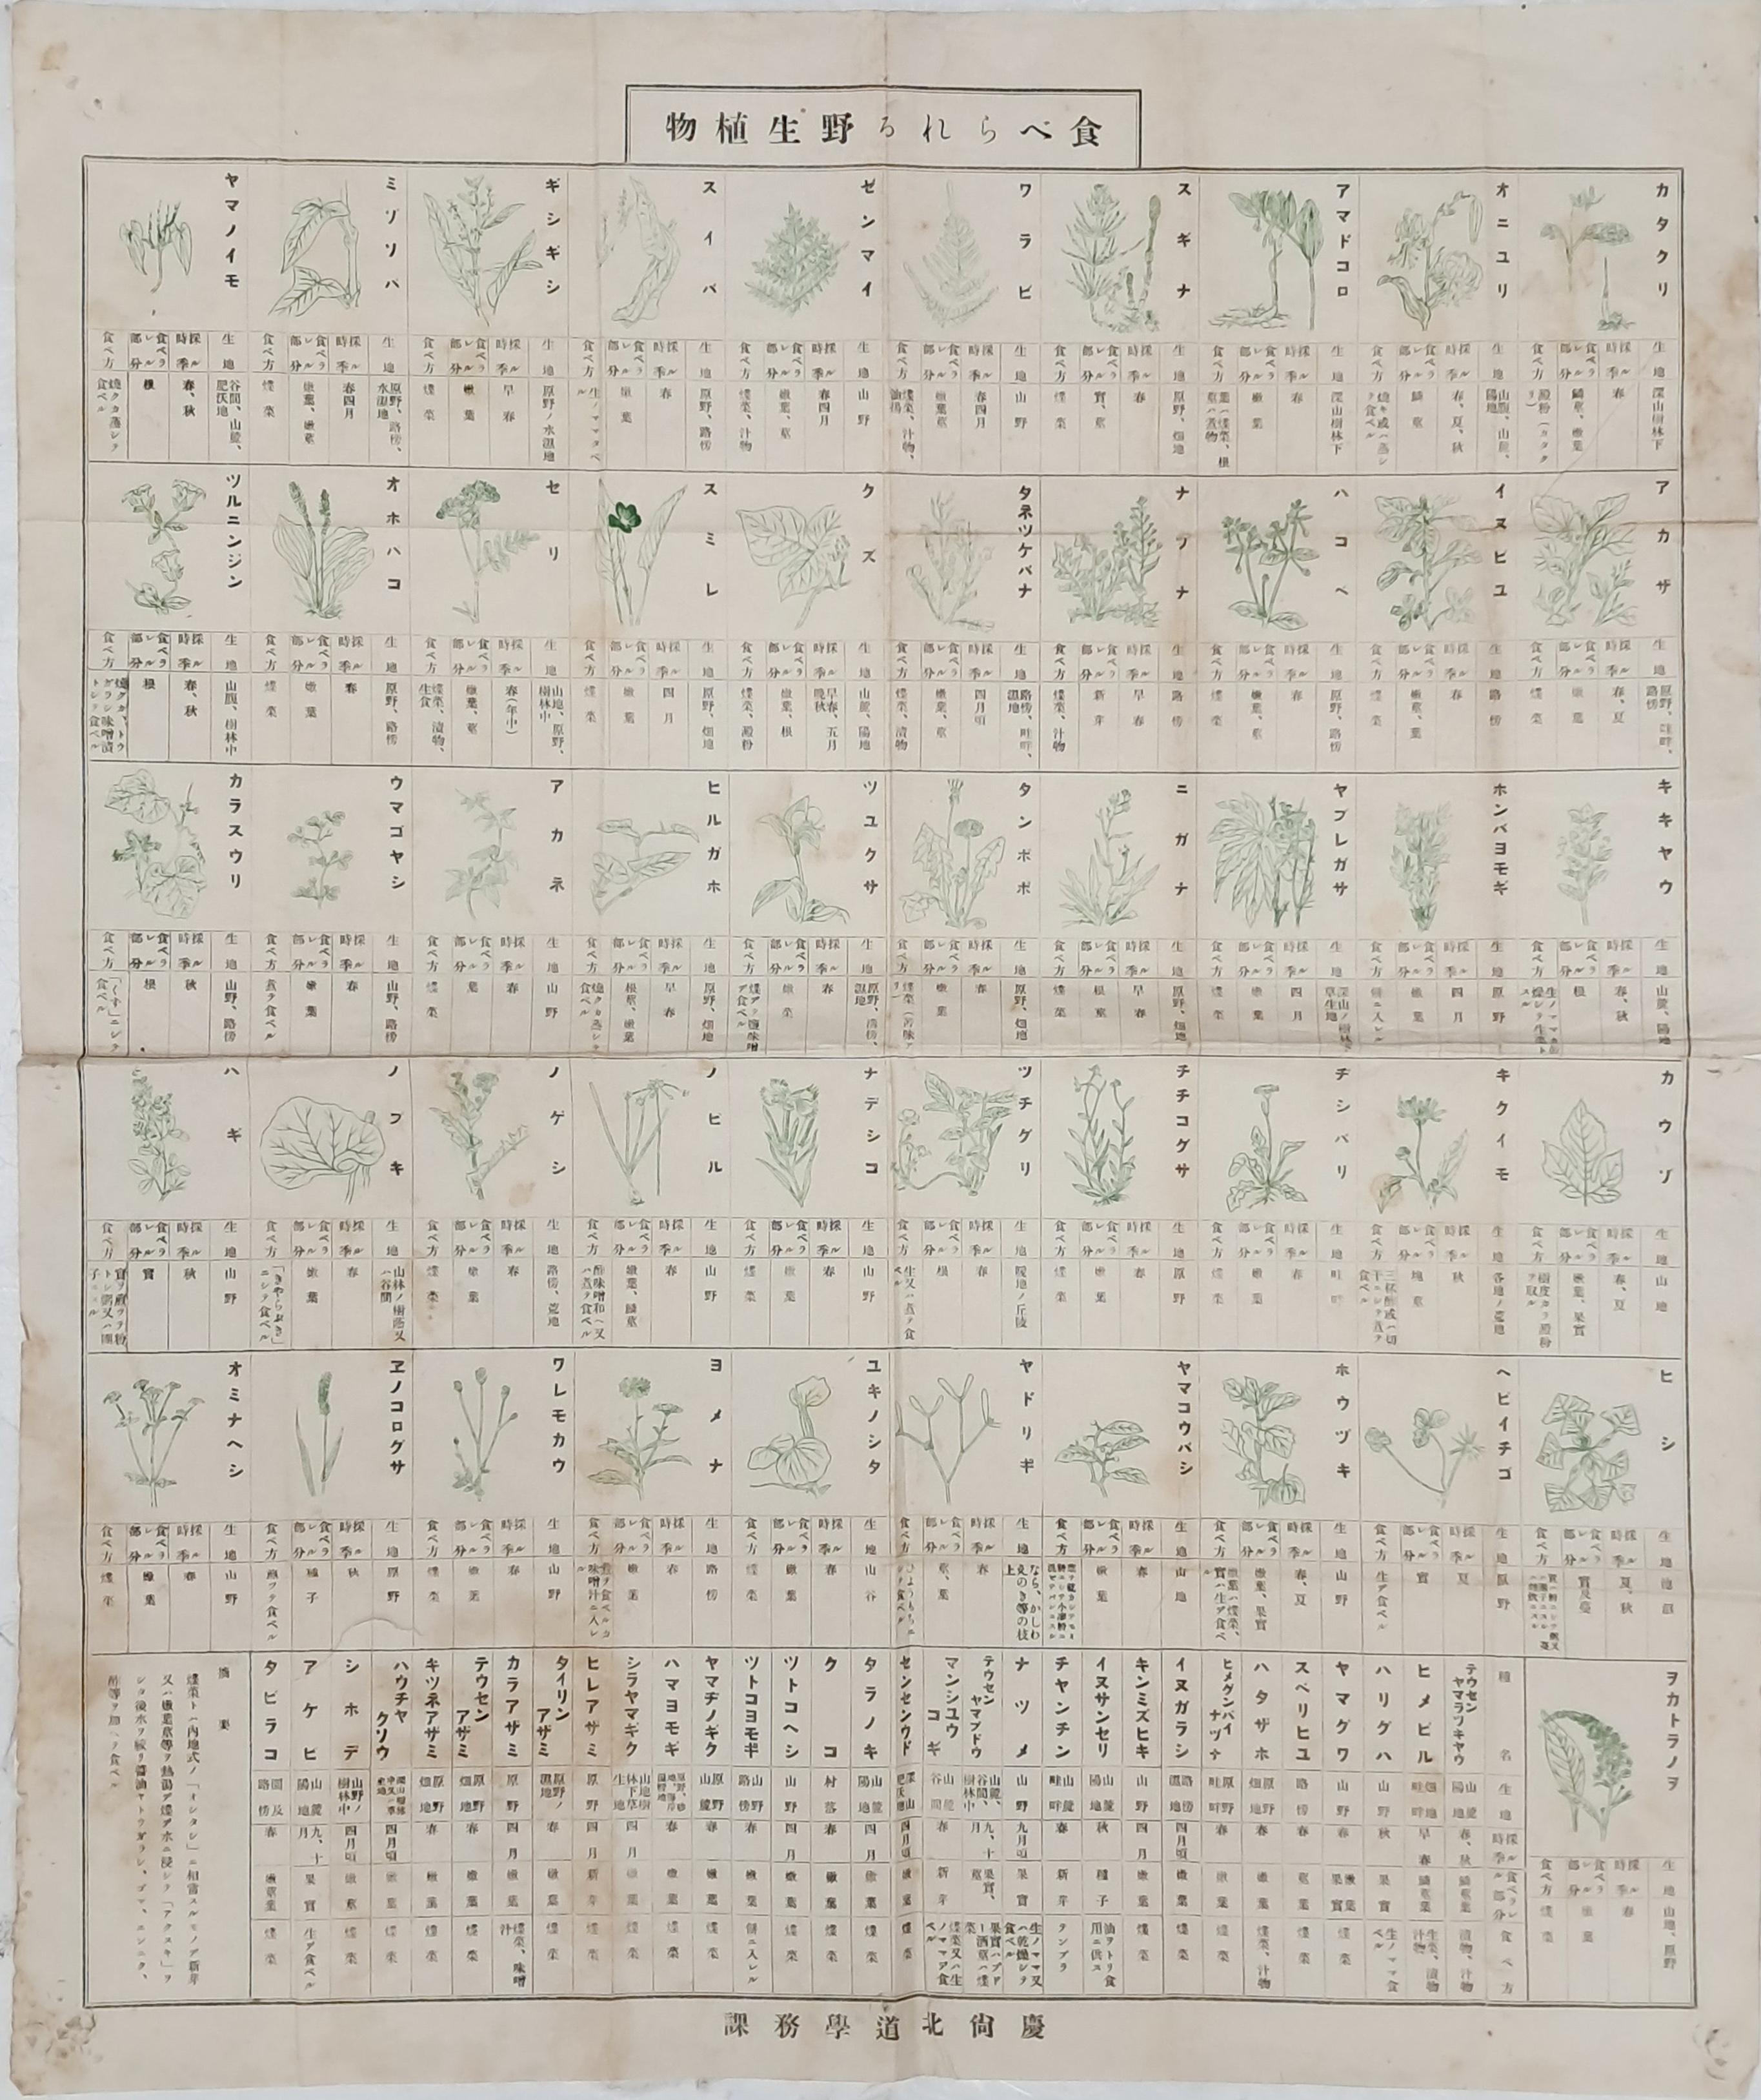 食べられる野生植物
カタクリ
生地 深山樹林下
採ル時季 春
食ベラレル部分 鱗莖、嫩葉
オニユリ
生地 山腹、山麓、陽地
採ル時季 春、夏、秋
食ベラレル部分 鱗莖
アマドコロ
生地 深山樹林下
採ル時季 春
食ベラレル部分 嫩葉
スギナ
生地 原野、畑地
採ル時季 春
食ベラレル部分 實、莖
食ベ方 煠菜
ワラビ
生地 山野
採ル時季 春四月
食ベラレル部分 嫩葉莖
ゼンマイ
生地 山野
採ル時季 春四月
食ベラレル部分 嫩葉、莖
食ベ方 煠菜、汁物
スイバ
生地 原野、路傍
採ル時季 春
食ベラレル部分 嫩葉
食ベ方 生ノママタベル
ギシギシ
生地 原野ノ水濕地
採ル時季 早春
食ベラレル部分 嫩葉
食ベ方 煠菜
ミゾソバ
生地 原野、路傍、水濕地
採ル時季 春四月
食ベラレル部分 嫩葉、嫩莖
食ベ方 煠菜
ヤマノイモ
生地 谷間、山麓、肥沃地
採ル時季 春、秋
食ベラレル部分 根
食ベ方 燒クカ蒸シテ食ベル
アカザ
生地 原野、畦畔、路傍
採ル時季 春、夏
食ベラレル部分 嫩葉
食ベ方 煠菜
イヌビユ
生地 路傍
採ル時季 春
食ベラレル部分 嫩莖、葉
食ベ方 煠菜
ハコベ
生地 原野、路傍
採ル時季 春
食ベラレル部分 嫩葉、莖
食ベ方 煠菜
ナヅナ
生地 路傍
採ル時季 早春
食ベラレル部分 新芽
食ベ方 煠菜、汁物
タネツケバナ
生地 路傍、畦畔、濕地
採ル時季 四月頃
食ベラレル部分 嫩葉、莖
食ベ方 煠菜、漬物
クズ
生地 山麓、陽地
採ル時季 早春、五月 晩秋
食ベラレル部分 嫩葉、根
食ベ方 煠菜、澱粉
スミレ
生地 原野、畑地
採ル時季 四月
食ベラレル部分 嫩葉
食ベ方 煠菜
セリ
生地 山地、原野、樹林中
採ル時季 春(年中)
食ベラレル部分 嫩葉、莖
食ベ方 煠菜、漬物、生食
オホバコ
生地 原野、路傍
採ル時季 春
食ベラレル部分 嫩葉
食ベ方 煠菜
ツルニンジン
生地 山腹、樹林中
採ル時季 春、秋
食ベラレル部分 根
キキヤウ
生地 山麓、陽地
採ル時季 春、秋
食ベラレル部分 根
ホンバヨモギ
生地 原野
採ル時季 四月
食ベラレル部分 嫩葉
食ベ方 餅ニ入レル
ヤブレガサ
採ル時季 四月
食ベラレル部分 嫩葉
食ベ方 煠菜
ニガナ
生地 原野、畑地
採ル時季 早春
食ベラレル部分 根莖
食ベ方 煠菜
タンポポ
生地 原野、畑地
採ル時季 春
食ベラレル部分 嫩葉
ツユクサ
生地 原野、路傍、濕地
採ル時季 春
ヒルガホ
生地 原野、畑地
採ル時季 早春
食ベラレル部分 根莖、嫩葉
食ベ方 燒クカ蒸シテ食ベル
アカネ
生地 山野
採ル時季 春
食ベラレル部分 葉
食ベ方 煠菜
ウマゴヤシ
生地 山野、路傍
採ル時季 春
食ベラレル部分 嫩葉
食ベ方 煮テ食ベル
カラスウリ
生地 山野、路傍
採ル時季 秋
食ベラレル部分 根
食ベ方 「くず」ニシテ食ベル
カウゾ
生地 山地
採ル時季 春、夏
食ベラレル部分 嫩葉、果實
食ベ方 樹皮カラ澱粉ヲ取ル
キクイモ
生地 各地ノ荒地
採ル時季 秋
食ベラレル部分 地莖
ヂシバリ
生地 畦畔
採ル時季 春
食ベラレル部分 嫩葉
食ベ方 煠菜
チチコグサ
生地 原野
採ル時季 春
食ベラレル部分 嫩葉
食ベ方 煠菜
ツチグリ
生地 陽地ノ丘陵
採ル時季 春
食ベラレル部分 根
食ベ方 生又ハ煮テ食ベル
ナデシコ
生地 山野
採ル時季 春
食ベラレル部分 嫩葉
食ベ方 煠菜
ノビル
生地 山野
採ル時季 春
食ベラレル部分 嫩葉、鱗莖
食ベ方 酢味噌和ヘ又ハ煮テ食ベル
ノゲシ
生地 路傍、荒地
採ル時季 春
食ベラレル部分 嫩葉
食ベ方 煠菜
ノブキ
生地 山林ノ樹蔭又ハ谷間
採ル時季 春
食ベラレル部分 嫩葉
食ベ方 「きやらぶき」ニシテ食ベル
ハギ
生地 山野
採ル時季 秋
食ベラレル部分 實
ヒシ
生地 池沼
採ル時季 夏、秋
食ベラレル部分 實及莖
ヘビイチゴ
生地 原野
採ル時季 夏
食ベラレル部分 實
食ベ方 生デ食ベル
ホウヅキ
生地 山野
採ル時季 春、夏
食ベラレル部分 嫩葉、果實
食ベ方 嫩葉ハ煠菜、實ハ生デ食ベル
ヤマコウバシ
生地 山地
採ル時季 春
食ベラレル部分 嫩葉
ヤドリギ
生地 なら、かしわ、えのき等の枝上
採ル時季 春
食ベラレル部分 莖、葉
ユキノシタ
生地 山谷
採ル時季 春
食ベラレル部分 嫩葉
食ベ方 煠菜
ヨメナ
生地 路傍
採ル時季 春
食ベラレル部分 嫩葉
ワレモカウ
生地 山野
採ル時季 春
食ベラレル部分 嫩葉
食ベ方 煠菜
ヱノコログサ
生地 原野
採ル時季 秋
食ベラレル部分 種子
食ベ方 煎ッテ食ベル
オミナヘシ
生地 山野
採ル時季 春
食ベラレル部分 嫩葉
食ベ方 煠菜
ヲカトラノヲ
生地 山地、原野
採ル時季 春
食ベラレル部分 嫩葉
食ベ方 煠菜
種名 生地 採ル時季 食ベラレル部分 食ベ方
テウセンヤマラツキヤウ 山麓陽地 春、秋 鱗莖葉 漬物、汁物
ヒメビル 畑地畦畔 早春 鱗莖葉 生菜、漬物、汁物
ハリグハ 山野 秋 果實 生ノママ食ベル
ヤマグワ 山野 春 嫩葉果實 煠菜
スベリヒユ 路傍 春 莖葉 煠菜
ハタザホ 原野畑地 春 嫩葉 煠菜、汁物
ヒメグンバイナヅナ 原野畦畔 春 嫩葉 煠菜
イヌガラシ 路傍濕地 四月頃 嫩葉 煠菜
キンミズヒキ 山野 四月 嫩葉 煠菜
イヌサンセリ 山麓陽地 秋 種子 油ヲトリ食用ニ供ス
チヤンチン 山麓畦畔 春 新芽 テンプラ
ナツメ 山野 九月頃 果實 生ノママ又ハ乾燥シテ食ベル
テウセンヤマブドウ 山麓、谷間、樹林中 九、十月 果實、莖
マンシユウコギ 山麓谷間 春 新芽 煠菜又ハ生ノママデ食ベル
センセンウド 深山肥沃地 四月頃 嫩葉 煠菜
タラノキ 山麓陽地 四月 嫩葉 煠菜
クコ 村落 春 嫩葉 煠菜
ツトコヘシ 山野 四月 嫩葉 煠菜
ツトコヨモギ 山野路傍 春 嫩葉 餅ニ入レル
ヤマヂノギク 原野山麓 春 嫩葉 煠菜
ハマヨモギ 春 嫩葉 煠菜
シラヤマギク 山地樹林下草生地 四月 嫩葉 煠菜
ヒレアザミ 原野 四月 新芽 煠菜
タイリンアザミ 原野ノ濕地 春 嫩葉 煠菜
カラアザミ 原野 四月 嫩葉 煠菜、味噌汁
テウセンアザミ 原野畑地 春 嫩葉 煠菜
キツネアザミ 原野畑地 春 嫩葉 煠菜
ハウチヤクソウ 四月頃 嫩葉 煠菜
シホデ 山野ノ樹林中 四月頃 嫩莖 煠菜
アケビ 山麓陽地 九、十月 果實 生デ食ベル
タビラコ 園及路傍 春 嫩莖葉 煠菜
摘要
煠菜トハ内地式ノ「オシタシ」ニ相當スルモノデ新芽
又ハ嫩葉莖等ヲ熱湯デ煠デ水ニ浸シテ「アクヌキ」ヲ
シタ後水ヲ絞リ醤油ヤトウガラシ、ゴマ、ニンニク、
酢等ヲ加ヘテ食ベル
慶尙北道學務課